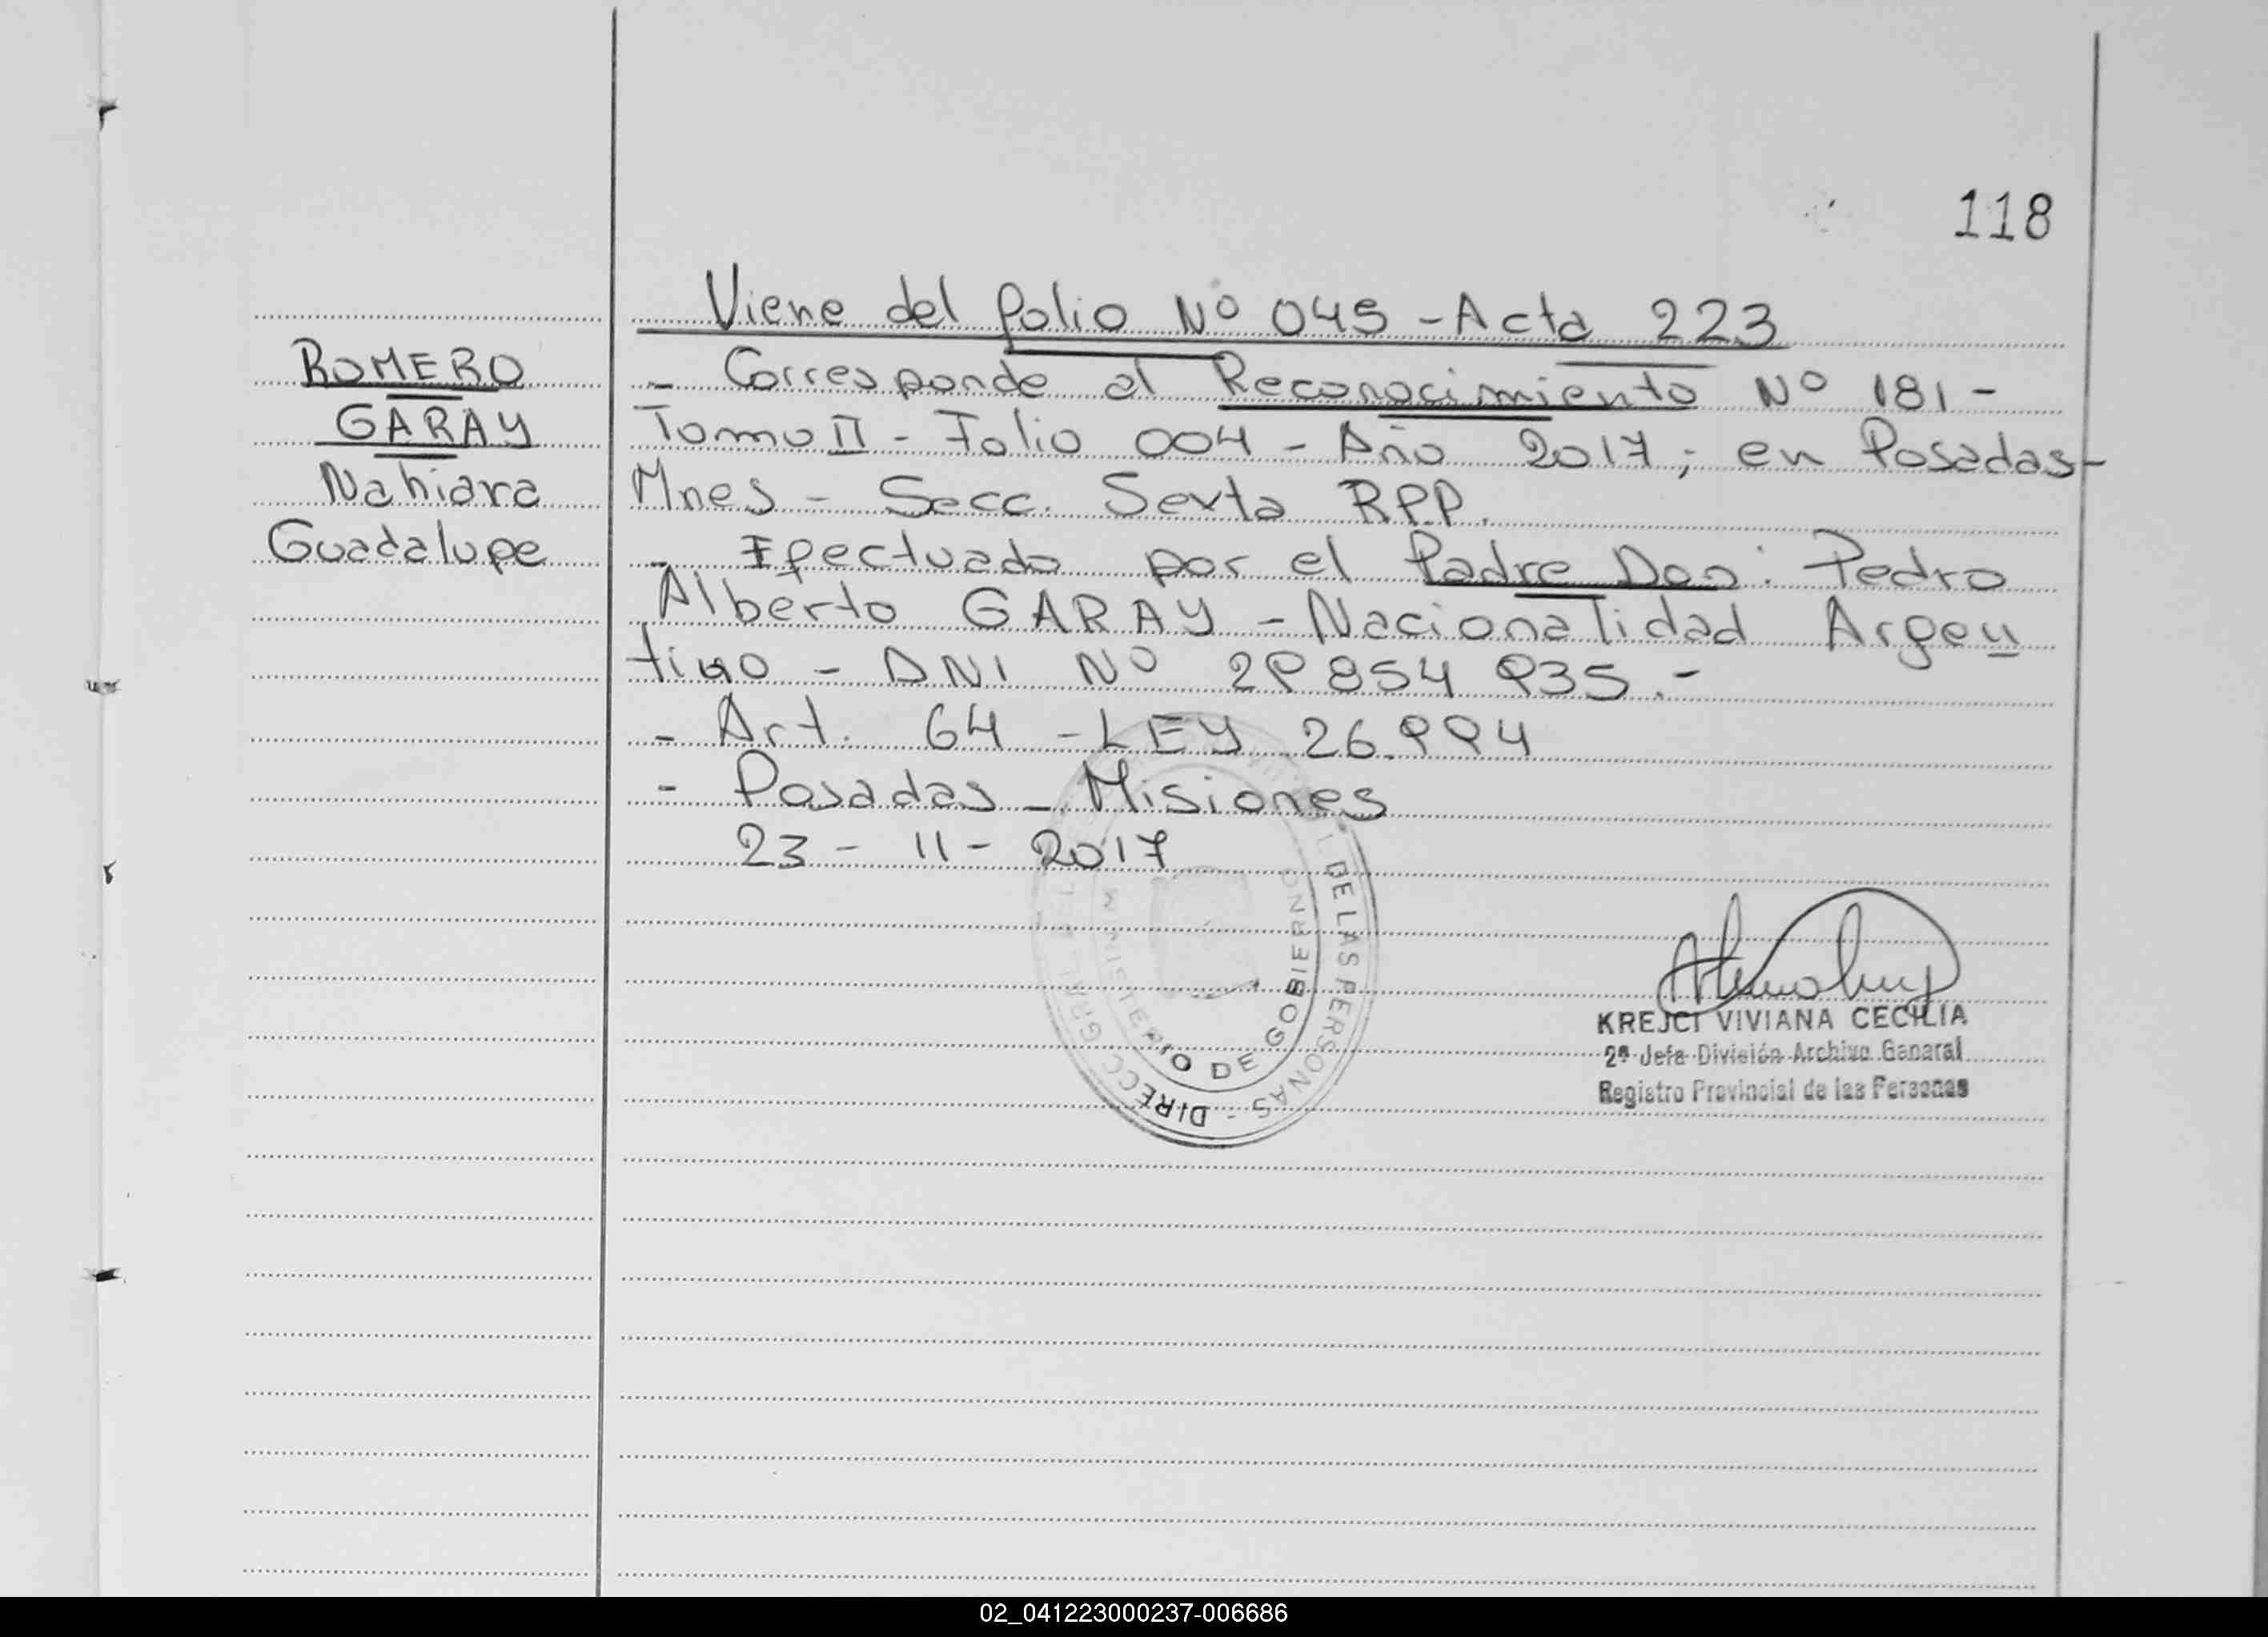 118
Viene del folio Nº 045 - Acta 223
ROMERO
GARAY
Nahiara
Guadalupe
- Corresponde al Reconocimiento Nº 181 -
Tomo II - Folio 004 - Año 2017; en Posadas -
Mnes - Secc. Sexta RPP.
- Efectuado por el Padre Don: Pedro
Alberto GARAY - Nacionalidad Argen
tino - DNI Nº 29854 935.-
- Art. 64 - LEY 26.994
- Posadas - Misiones
23 - 11 - 2017
DE LAS PERSONAS - DIRECC GRAL
MINISTERIO DE GOBIERNO
KREJCI VIVIANA CECILIA
2ª Jefa División Archivo General
Registro Provincial de las Personas
02_041223000237-006686